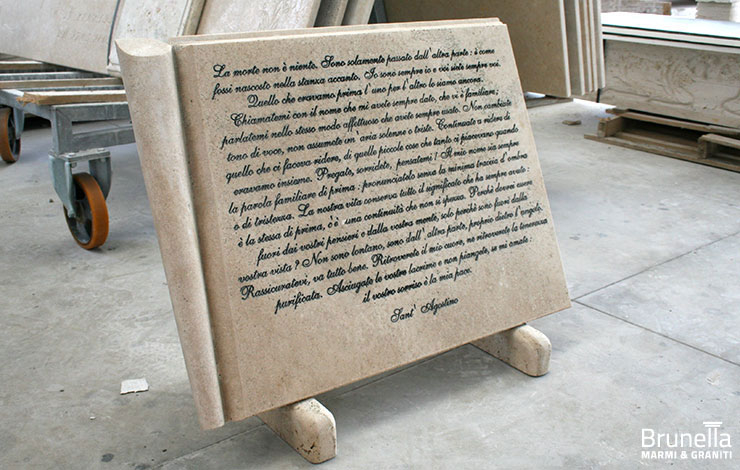 La morte non è niente. Sono solamente passato dall'altra parte: è come
fossi nascosto nella stanza accanto. Io sono sempre io e voi siete sempre voi.
Quello che eravamo prima l'uno per l'altro lo siamo ancora.
Chiamatemi con il nome che mi avete sempre dato, che vi è familiare;
parlatemi nello stesso modo affettuoso che avete sempre usato. Non cambiate
tono di voce, non assumete un aria solenne o triste. Continuate a ridere di
quello che ci faceva ridere, di quelle piccole cose che tanto ci piacevano quando
eravamo insieme. Pregate, sorridete, pensatemi! Il mio nome sia sempre
la parola familiare di prima: pronunciatelo senza la minima traccia d'ombra
o di tristezza. La nostra vita conserva tutto il significato che ha sempre avuto:
è la stessa di prima, c'è una continuità che non si spezza. Perchè dovrei essere
fuori dai vostri pensieri e dalla vostra mente, solo perchè sono fuori dalla
vostra vista? Non sono lontano, sono dall'altra parte, proprio dietro l'angolo.
Rassicuratevi, va tutto bene. Ritroverete il mio cuore, ne ritroverete la tenerezza
purificata. Asciugate le vostre lacrime e non piangete, se mi amate:
il vostro sorriso è la mia pace.
Sant' Agostino
Brunella
MARMI & GRANITI